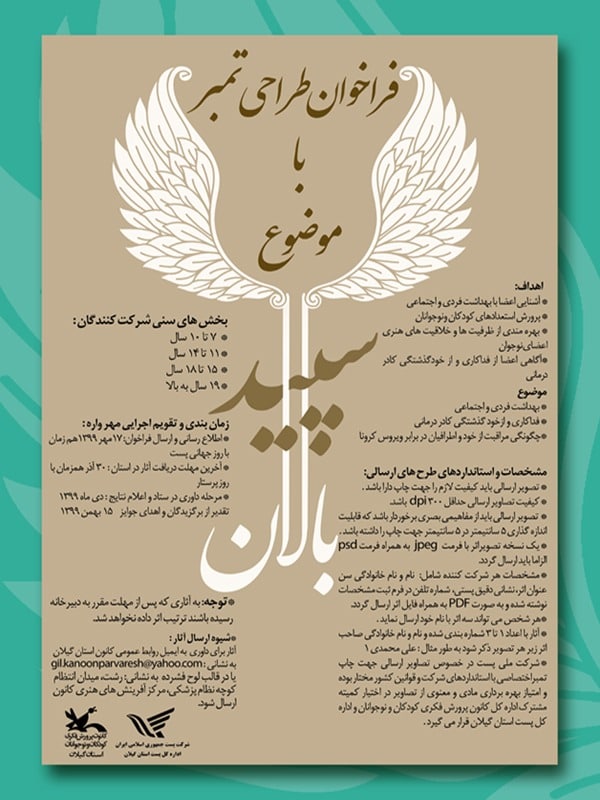 فراخوان طراحی تمبر
با
موضوع
سپید
بالان
اهداف:
* آشنایی اعضا با بهداشت فردی و اجتماعی
* پرورش استعدادهای کودکان و نوجوانان
* بهره مندی از ظرفیت ها و خلاقیت های هنری
اعضای نوجوان
*آگاهی اعضا از فداکاری و از خودگذشتگی کادر
درمانی
موضوع
* بهداشت فردی و اجتماعی
* فداکاری و ازخود گذشتگی کادر درمانی
*چگونگی مراقبت از خود و اطرافیان در برابر ویروس کرونا
مشخصات و استانداردهای طرح های ارسالی:
* تصویر ارسالی باید کیفیت لازم را جهت چاپ دارا باشد.
* کیفیت تصاویر ارسالی حداقل ۳۰۰ dpi باشد.
* تصویر ارسالی باید از مفاهیمی بصری برخوردار باشد که قابلیت
اندازه گذاری ۵ سانتیمتر در ۵ سانتیمتر جهت چاپ را داشته باشد.
* یک نسخه تصویر اثر با فرمت jpeg به همراه فرمت psd
الزاما باید ارسال گردد.
* مشخصات هر شرکت کننده شامل: نام و نام خانوادگی سن
عنوان اثر، نشانی دقیق پستی، شماره تلفن در فرم ثبت مشخصات
نوشته شده و به صورت PDF به همراه فایل اثر ارسال گردد.
*هر شخص می تواند سه اثر با نام خود ارسال نماید.
* آثار با اعداد ۱ تا ۳ شماره بندی شده و نام و نام خانوادگی صاحب
اثر زیر هر تصویر ذکر شود به طور مثال: علی محمدی ۱
* شرکت ملی پست در خصوص تصاویر ارسالی جهت چاپ
تمبر اختصاصی با استانداردهای شرکت و قوانین کشور مختار بوده
و امتیاز بهره برداری مادی و معنوی از تصاویر در اختیار کمیته
مشترک اداره کل کانون پرورش فکری کودکان و نوجوانان و اداره
کل پست استان گیلان قرار می گیرد.
بخش های سنی شرکت کنندگان:
* ۷ تا ۱۰ سال
* ۱۱ تا ۱۴ سال
* ۱۵ تا ۱۸ سال
* ۱۹ سال به بالا
زمان بندی و تقویم اجرایی مهرواره:
* اطلاع رسانی و ارسال فراخوان: ۱۷ مهر ۱۳۹۹ هم زمان
با روز جهانی پست
* آخرین مهلت دریافت آثار در استان: ۳۰ آذر همزمان با
روز پرستار
* مرحله داوری در ستاد و اعلام نتایج: دی ماه ۱۳۹۹
تقدیر از برگزیدگان و اهدای جوایز ۱۵ بهمن ۱۳۹۹
*توجه: به آثاری که پس از مهلت مقرر به دبیرخانه
رسیده باشند ترتیب اثر داده نخواهد شد.
*شیوه ارسال آثار:
آثار برای داوری به ایمیل روابط عمومی کانون استان گیلان
به نشانی: gil.kanoonparvaresh@yahoo.com
یا در قالب لوح فشرده به نشانی: رشت، میدان انتظام
کوچه نظام پزشکی، مرکز آفرینش های هنری کانون
ارسال شود.
شرکت پست جمهوری اسلامی ایران
اداره کل پست استان گیلان
کانون پرورش فکری
کودکان و نوجوانان
استان گیلان